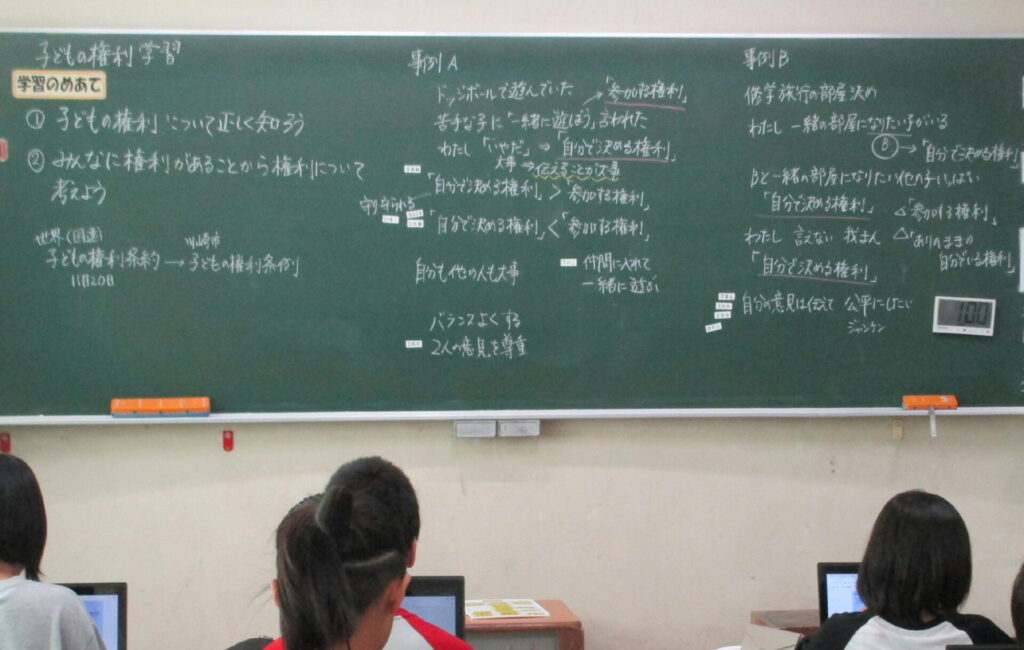 子どもの権利学習
学習のめあて
① 子どもの権利について正しく知ろう
② みんなに権利があることから権利について
考えよう
世界(国連)
子どもの権利条約 → 川崎市 子どもの権利条例
11月20日
事例A
ドッジボールで遊んでいた → 「参加する権利」
苦手な子に「一緒に遊ぼう」言われた
わたし 「いやだ」 ⇒ 「自分で決める権利」
大事 → 伝えることが大事
「自分で決める権利」 > 「参加する権利」
守り守られる
「自分で決める権利」 < 「参加する権利」
自分も他の人も大事
仲間に入れて
一緒に遊ぶ
バランスよくする
2人の意見を尊重
事例B
修学旅行の部屋決め
わたし 一緒の部屋になりたい子がいる
B → 「自分で決める権利」
Bと一緒の部屋になりたい他の子いっぱい
「自分で決める権利」 △「参加する権利」
わたし 言えない 我まん △「ありのままの
自分でいる権利」
「自分で決める権利」
自分の意見は伝えて 公平にしたい
ジャンケン